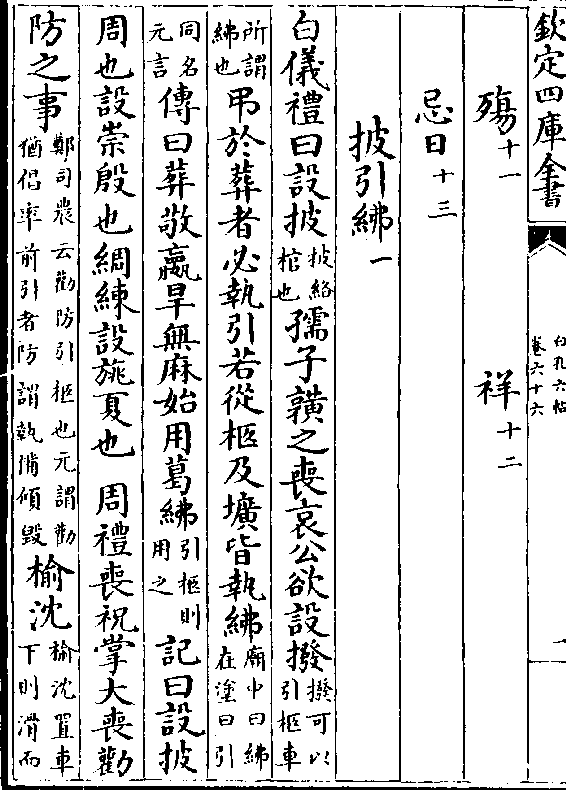 欽定四庫全書
白孔六帖
卷六十六
一
殤十一
祥十二
忌日十三
披引紼一
白儀禮曰設披披絡棺也孺子䵍之喪哀公欲設撥撥可以引柩車
所謂紼也弔於葬者必執引若從柩及壙皆執紼廟中曰紼在塗曰引
同名元言傳曰葬敬嬴旱無麻始用葛紼引柩則用之記曰設披
周也設崇殷也綢練設旐夏也 周禮喪祝掌大喪勸
防之事鄭司農云勸防引柩也元謂勸猶倡率前引者防謂執備傾毀榆沈榆沈置車下則滑而